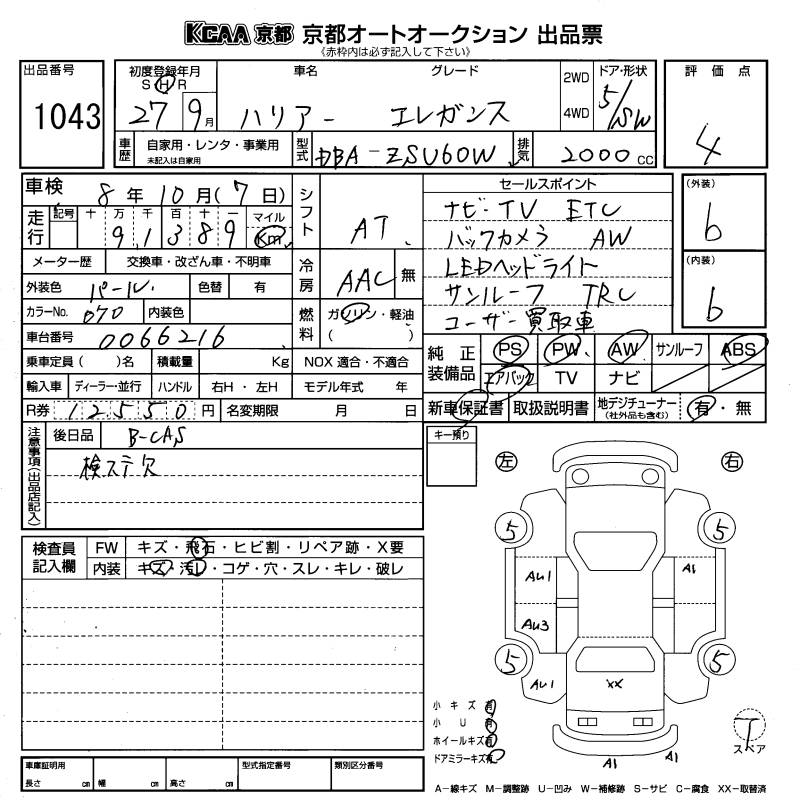 KCAA 京都 京都オートオークション 出品票
《赤枠内は必ず記入して下さい》
出品番号
1043
初度登録年月
S H R
27 9月
車名 グレード
ハリアー エレガンス
2WD
4WD
ドア・形状
5/SW
評価点
4
車歴
自家用・レンタ・事業用
未記入は自家用
型式
DBA-ZSU60W
排気
2000 CC
車検 8年10月(7日)
走行
記号 十 万 千 百 十 一 マイル
9 1 3 8 9 Km
メーター歴 交換車・改ざん車・不明車
外装色 パール 色替 有
カラーNo. 070 内装色
車台番号 0066216
乗車定員( )名 積載量 Kg NOX 適合・不適合
輸入車 ディーラー・並行 ハンドル 右H・左H モデル年式 年
R券 12550円 名変期限 月 日
シフト
AT
冷房
AAC 無
燃料
ガソリン・軽油
( )
セールスポイント
ナビ・TV ETC
バックカメラ AW
LEDヘッドライト
サンルーフ TRC
ユーザー買取車
(外装)
6
(内装)
6
純正装備品
PS PW AW サンルーフ ABS
エアバック TV ナビ
新車保証書 取扱説明書 地デジチューナー
(社外品も含む)
有・無
注意事項(出品店記入)
後日品 B-CAS
検ステ欠
キー預り
左
右
検査員記入欄
FW キズ・飛石・ヒビ割・リペア跡・X要
内装 キズ・汚レ・コゲ・穴・スレ・キレ・破レ
5 5
AU1 A1
AU3
5 5
AU1 XX
A1 A1
小キズ有
小U有
ホイールキズ有
ドアミラーキズ有
T
スペア
車庫証明用
長さ cm 幅 cm 高さ cm
型式指定番号
類別区分番号
A−線キズ M−調整跡 U−凹み W−補修跡 S−サビ C−腐食 XX−取替済